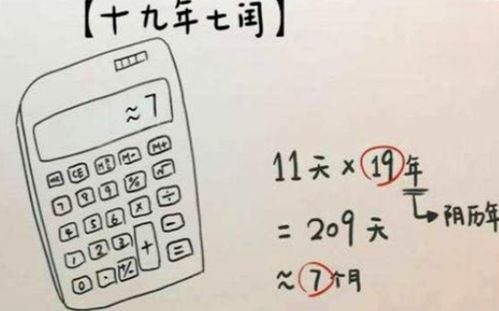 【十九年七闰】
≈7
MC CE M- M+
7 8 9 % √
4 5 6 × ÷
1 2 3 + -
0 · +/- =
11天×19年
→阴历年
=209天
≈7个月